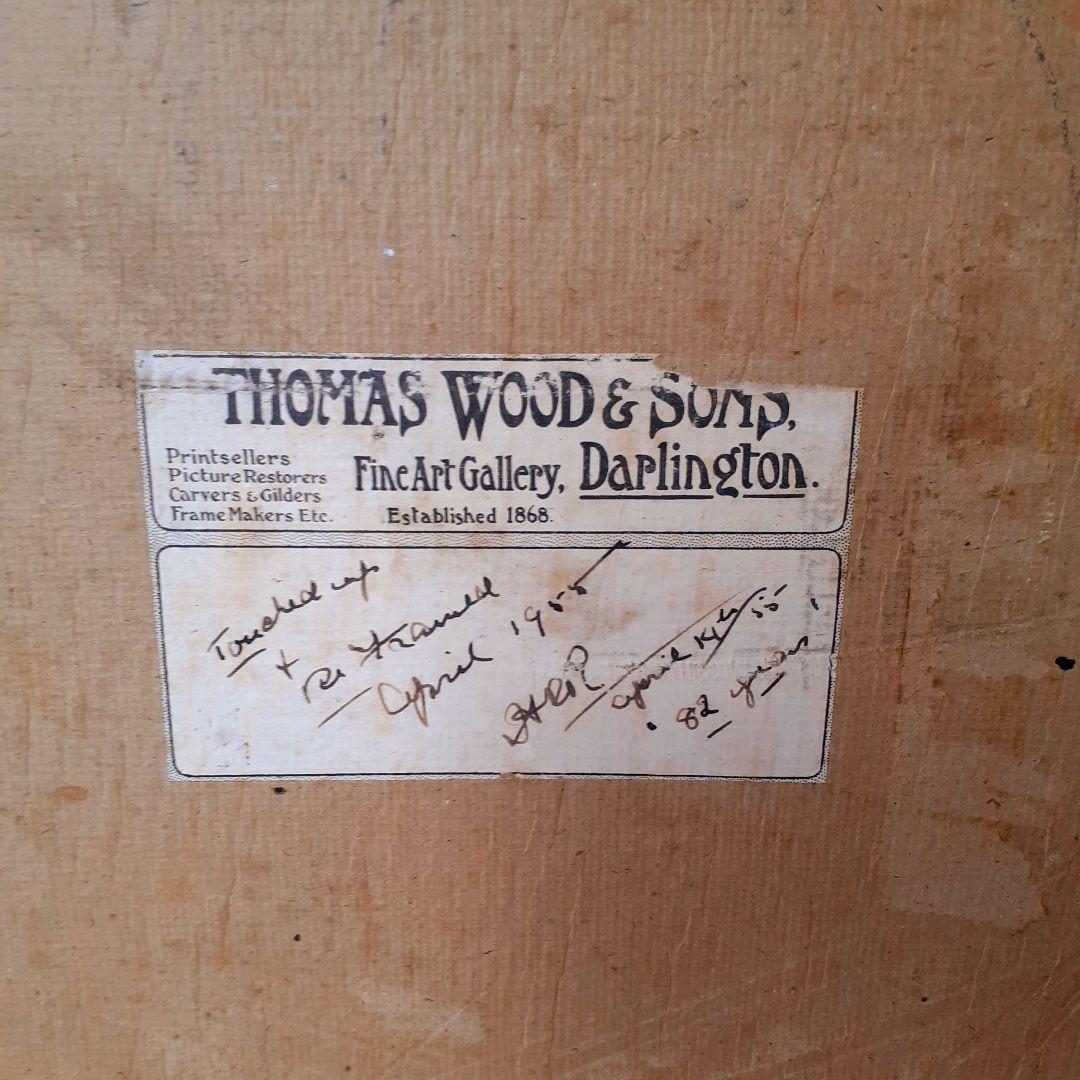 THOMAS WOOD & SONS,
Printsellers
Picture Restorers
Carvers & Gilders
Frame Makers Etc.
Fine Art Gallery, Darlington.
Established 1868.
Touched up
+
Re Framed
April 1955
April 55
82 years